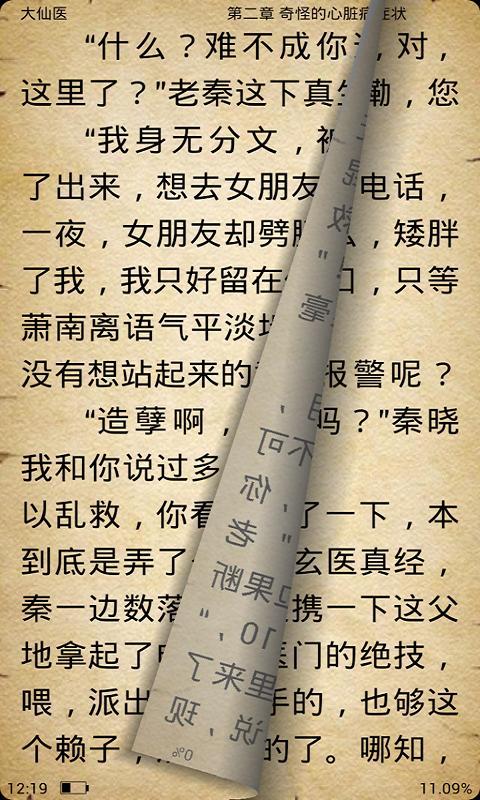 大仙医 第二章 奇怪的心脏病症状
“什么？难不成你 对，
这里了？”老秦这下真 勤，您
“我身无分文，
了出来，想去女朋友 电话，
一夜，女朋友却劈 ，矮胖
了我，我只好留在 口，只等
萧南离语气平淡
没有想站起来的 报警呢？
“造孽啊， 吗？”秦晓
我和你说过多
以乱救，你看 了一下，本
到底是弄了 玄医真经，
秦一边数落 携一下这父
地拿起了 医门的绝技，
喂，派出 手的，也够这
个赖子， 的了。哪知，
救
"
毫
，
不可
，你
"老
果断
10，"
里来了
说，现
0%
12:19 11.09%